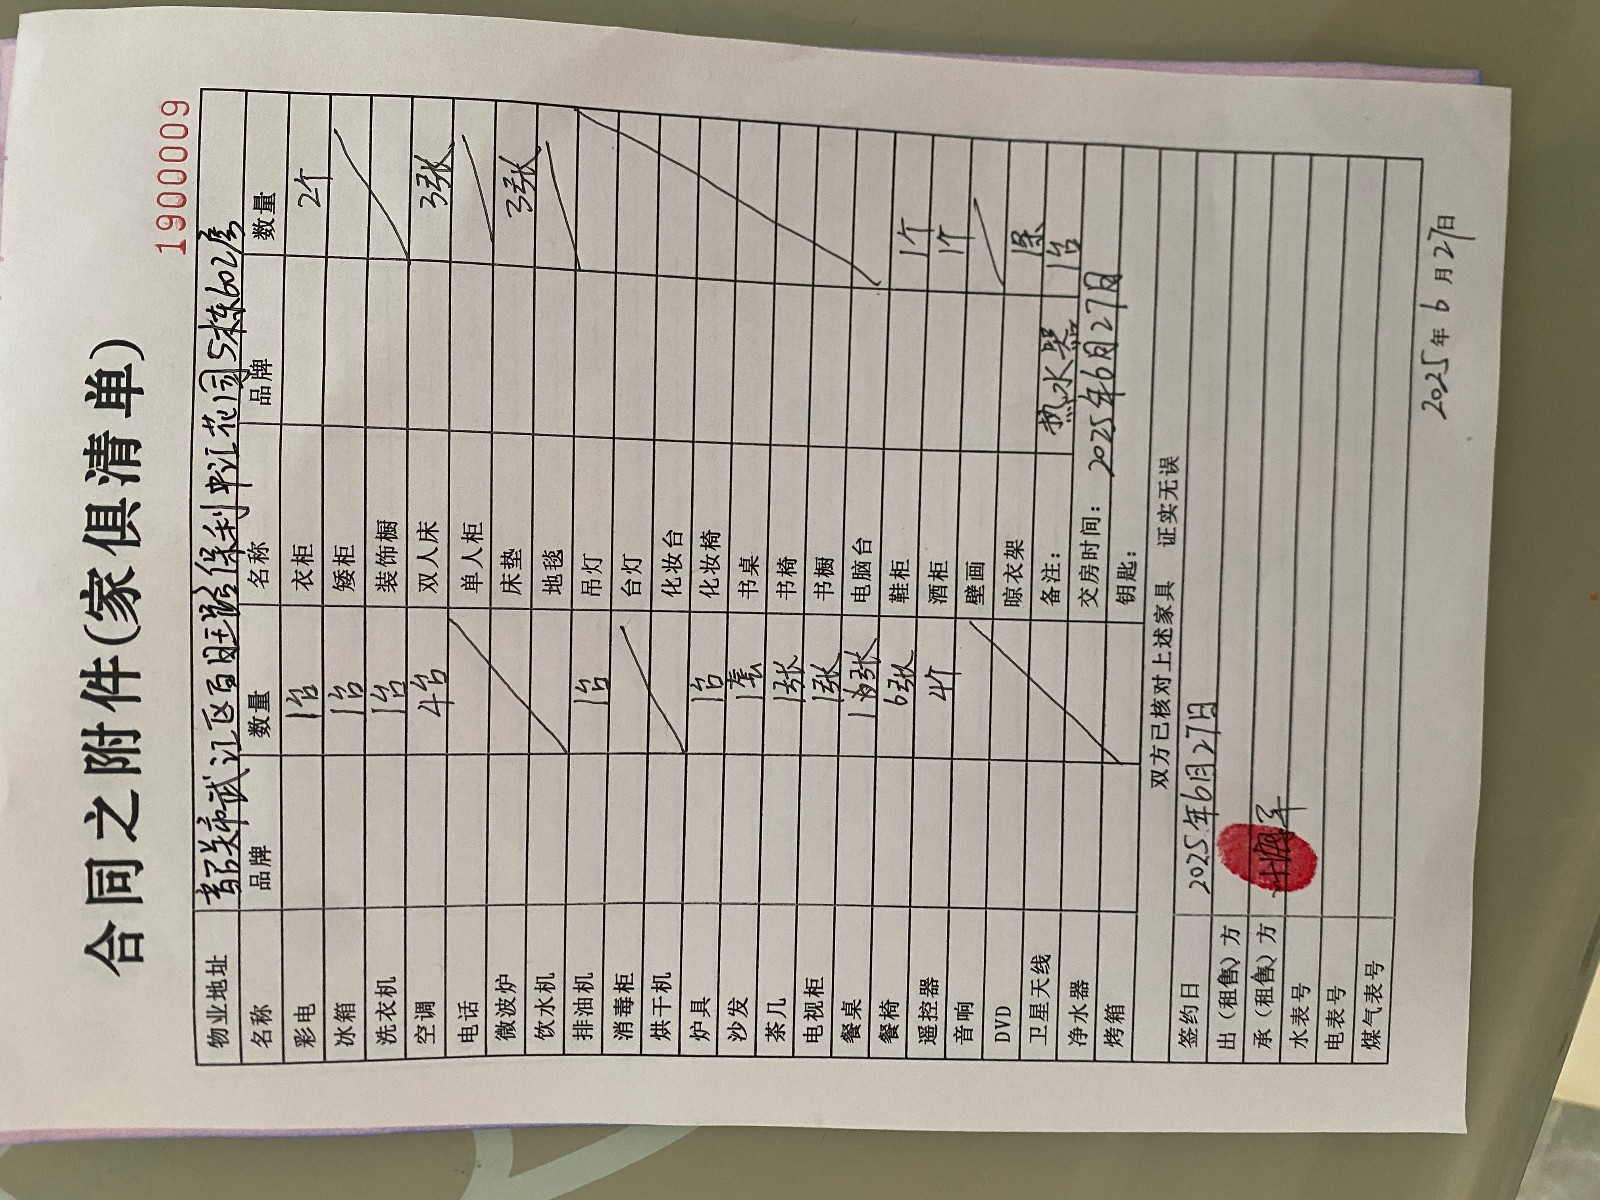 合同之附件(家俱清单)
1900009
物业地址 韶关市武江区百旺路保利中汇花园5栋602房
名称 品牌 数量 名称 品牌 数量
彩电 1台 衣柜 2个
冰箱 1台 矮柜
洗衣机 1台 装饰橱
空调 4台 双人床 3张
电话 单人柜
微波炉 床垫 3张
饮水机 地毯
排油机 1台 吊灯
消毒柜 台灯
烘干机 化妆台
炉具 1台 化妆椅
沙发 1套 书桌
茶几 1张 书椅
电视柜 1张 书橱
餐桌 1张 电脑台
餐椅 6张 鞋柜 1个
遥控器 4个 酒柜 1个
音响 壁画
DVD 晾衣架 1条
卫星天线 备注: 热水器 1台
净水器 交房时间: 2025年6月27日
烤箱 钥匙:
双方已核对上述家具 证实无误
签约日 2025年6月27日
出(租售)方
承(租售)方
水表号
电表号
煤气表号
2025年6月27日